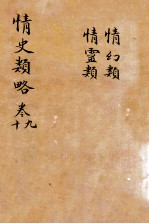 情幻類
情靈類
情史類略 卷九十